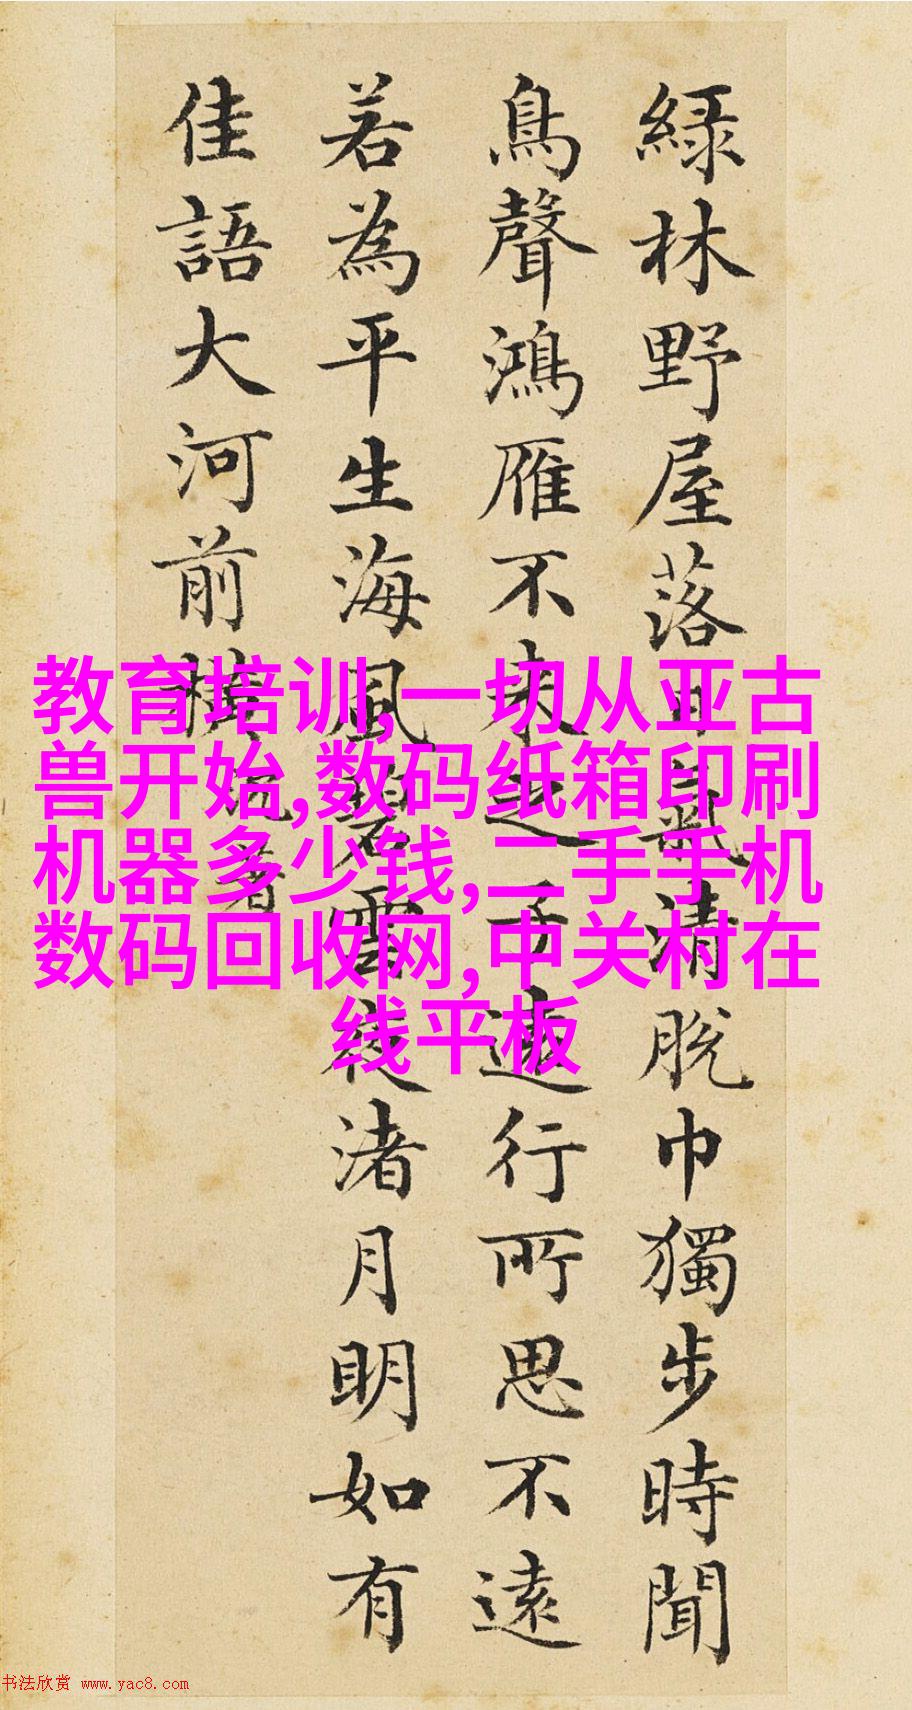 綠林野屋落日氣清脫巾獨步時聞
鳥聲鴻雁不來之子遠行所思不遠
若為平生海風碧雲夜渚月明如有
佳語大河前橫 沉著
教育培训,一切从亚古
兽开始,数码纸箱印刷
机器多少钱,二手手机
数码回收网,中关村在
线平板
书法欣赏 www.yac8.com